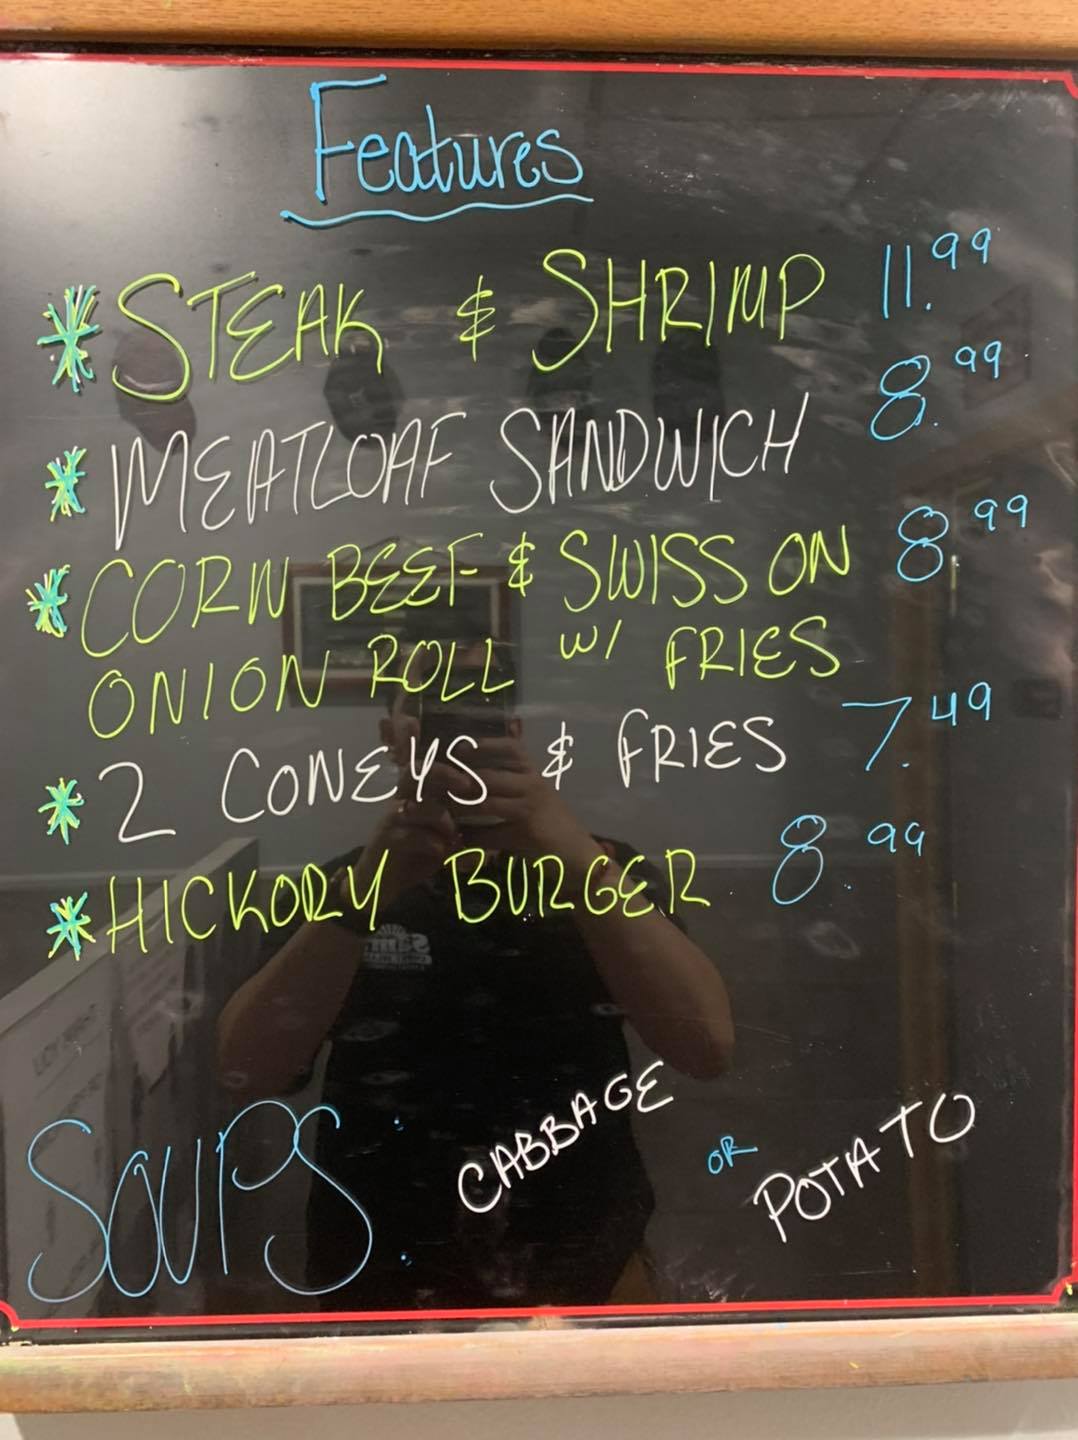 Features
* STEAK & SHRIMP 11.99
* MEATLOAF SANDWICH 8.99
* CORN BEEF & SWISS ON 8.99
ONION ROLL W/ FRIES
* 2 CONEYS & FRIES 7.49
* HICKORY BURGER 8.99
SOUPS: CABBAGE OR POTATO